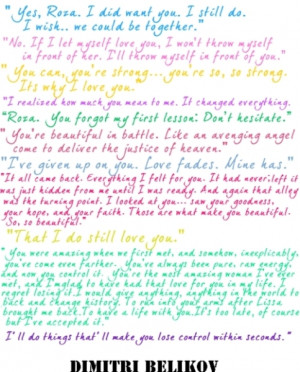 " Yes, Roza. I did want you. I still do.
I wish.. we could be together."
"No. If I let myself love you, I won't throw myself
in front of her. I'll throw myself in front of you."
"You can, you're strong... you're so, so strong.
Its why I love you."
"I realized how much you mean to me. It changed everything.
"Roza. You forgot my first lesson: Don't hesitate."
"You're beautiful in battle. Like an avenging angel
come to deliver the justice of heaven."
"I've given up on you. Love fades. Mine has."
"It all came back. Everything I felt for you. It had never left it
was just hidden from me until I was ready. And again that alley
was the turning point. I looked at you... saw your goodness,
your hope, and your faith. Those are what make you beautiful.
So, so beautiful."
"That I do still love you."
"You were amazing when we first met, and somehow, inexplicably,
you've come even farther. You've always been pure, raw energy,
and now you control it. You're the most amazing woman I've ever
met, and I'm glad to have had that love for you in my life. I
regret losing it. I would give anything, anything in the world to
back and change history. To run into your arms after Lissa
brought me back. To have a life with you. It's too late, of course
but I've accepted it."
"I'll do things that'll make you lose control within seconds."
DIMITRI BELIKOV